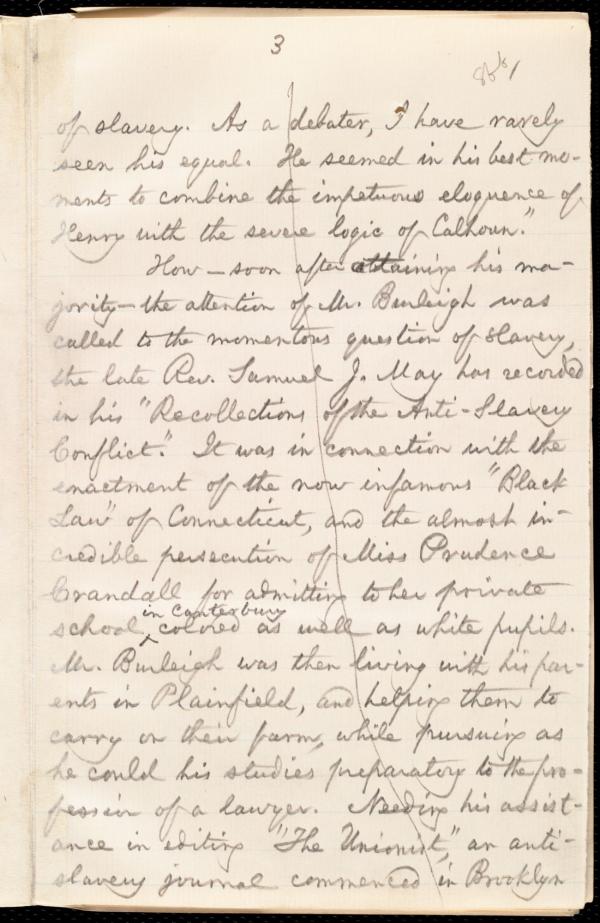 3
of slavery. As a debater, I have rarely
seen his equal. He seemed in his best mo-
ments to combine the impetuous eloquence of
Henry with the severe logic of Calhoun."
How — soon after attaining his ma-
jority — the attention of Mr. Burleigh was
called to the momentous question of slavery,
the late Rev. Samuel J. May has recorded
in his "Recollections of the Anti-Slavery
Conflict." It was in connection with the
enactment of the now infamous "Black
Law" of Connecticut, and the almost in-
credible persecution of Miss Prudence
Crandall for admitting to her private
in Canterbury
school, colored as well as white pupils.
Mr. Burleigh was then living with his par-
ents in Plainfield, and helping them to
carry on their farm, while pursuing as
he could his studies preparatory to the pro-
fession of a lawyer. Needing his assist-
ance in editing "The Unionist," an anti-
slavery journal commenced in Brooklyn